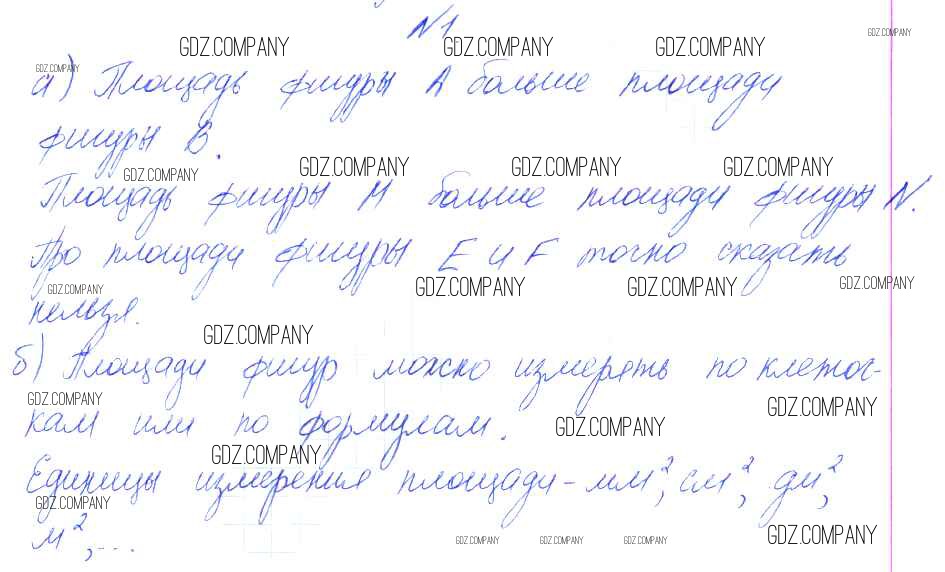 №1
а) Площадь фигуры А больше площади
фигуры В.
Площадь фигуры М больше площади фигуры N.
Про площади фигуры Е и F точно сказать
нельзя.
б) Площади фигур можно измерять по клеточ-
кам или по формулам.
Единицы измерения площади - мм², см², дм²,
м², ...
GDZ.COMPANY GDZ.COMPANY GDZ.COMPANY GDZ.COMPANY
GDZ.COMPANY
GDZ.COMPANY GDZ.COMPANY GDZ.COMPANY GDZ.COMPANY
GDZ.COMPANY GDZ.COMPANY GDZ.COMPANY GDZ.COMPANY
GDZ.COMPANY
GDZ.COMPANY GDZ.COMPANY GDZ.COMPANY
GDZ.COMPANY
GDZ.COMPANY
GDZ.COMPANY GDZ.COMPANY GDZ.COMPANY GDZ.COMPANY